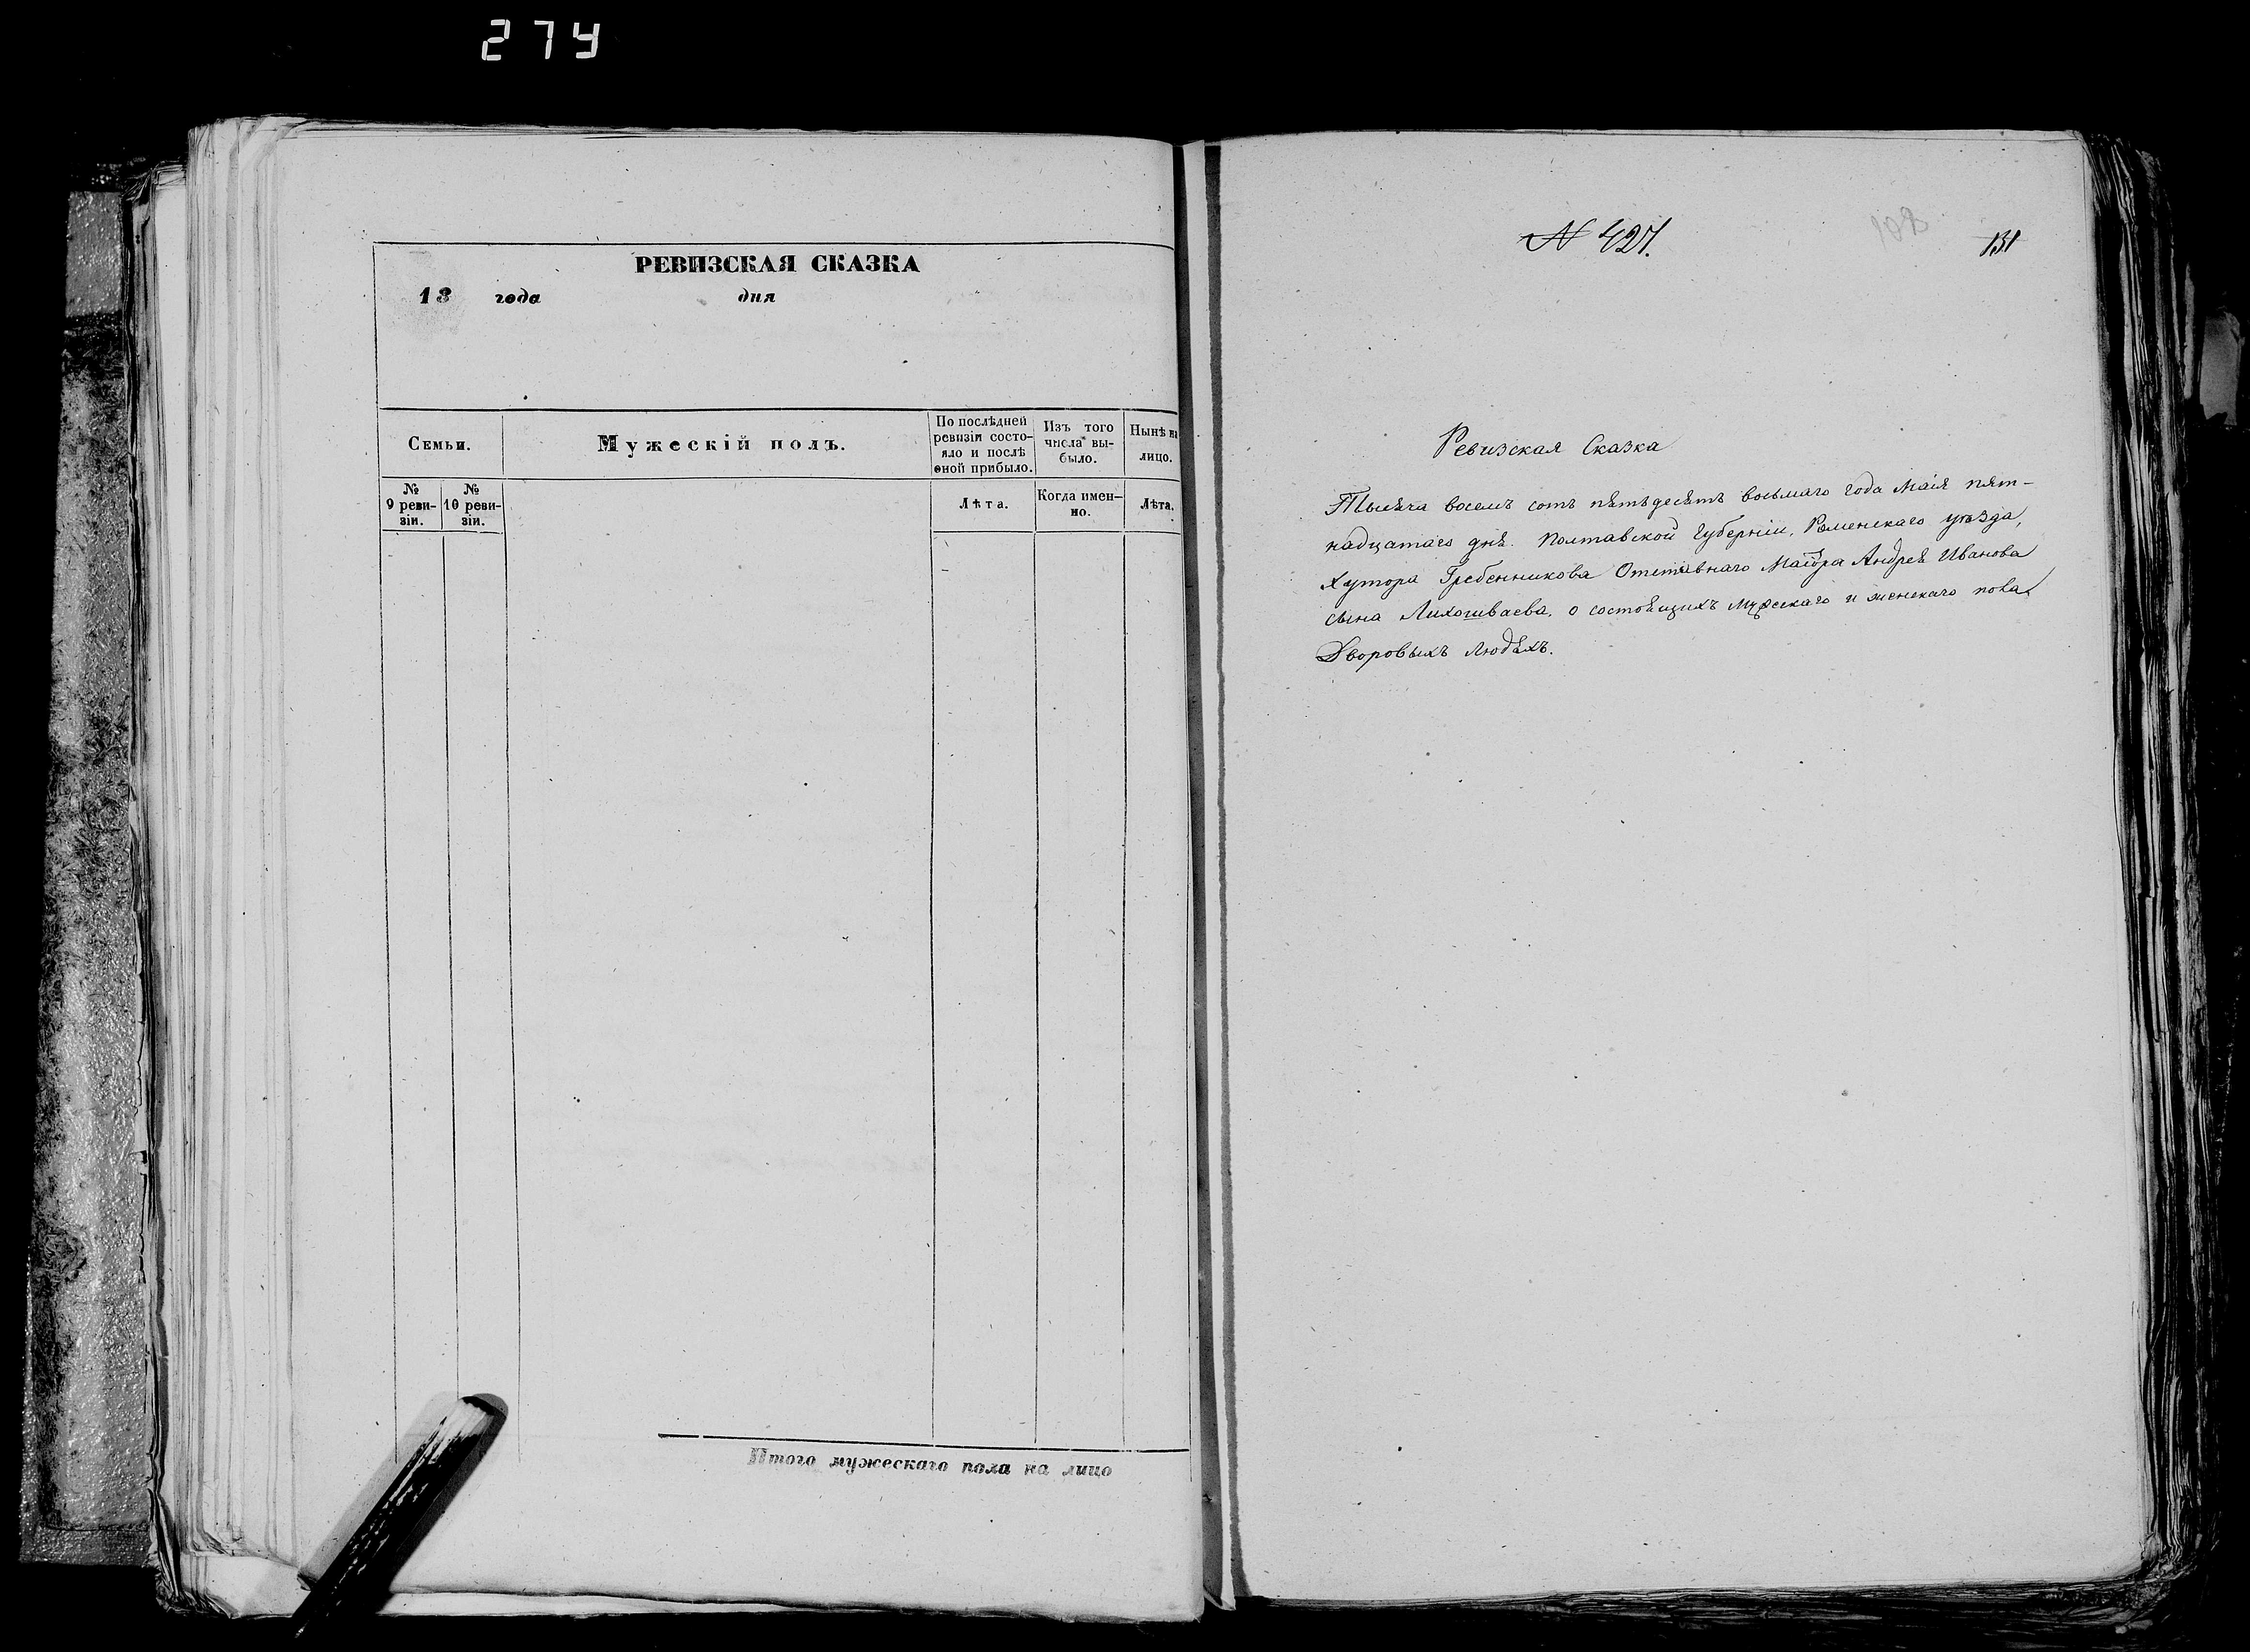 274
РЕВИЗСКАЯ СКАЗКА
18 года дня
Семьи.
Мужескій полъ.
По послѣдней ревизіи состо-
яло и послѣ оной прибыло.
Изъ того числа вы-
было.
Нынѣ на лицо.
№ 9 реви-
зіи.
№ 10 реви-
зіи.
Лѣта.
Когда имен-
но.
Лѣта.
Итого мужескаго пола на лицо
№ 427.
108
131
Ревизская Сказка
Тысяча восемъ сотъ пятьдесятъ восьмаго года Маія пят-
надцатаго дня. Полтавской Губерніи, Роменскаго уѣзда,
Хутора Гребенникова Отставнаго Маіора Андрея Иванова
сына Лихошваева, о состоящихъ мужескаго и женскаго пола
Дворовыхъ людяхъ.